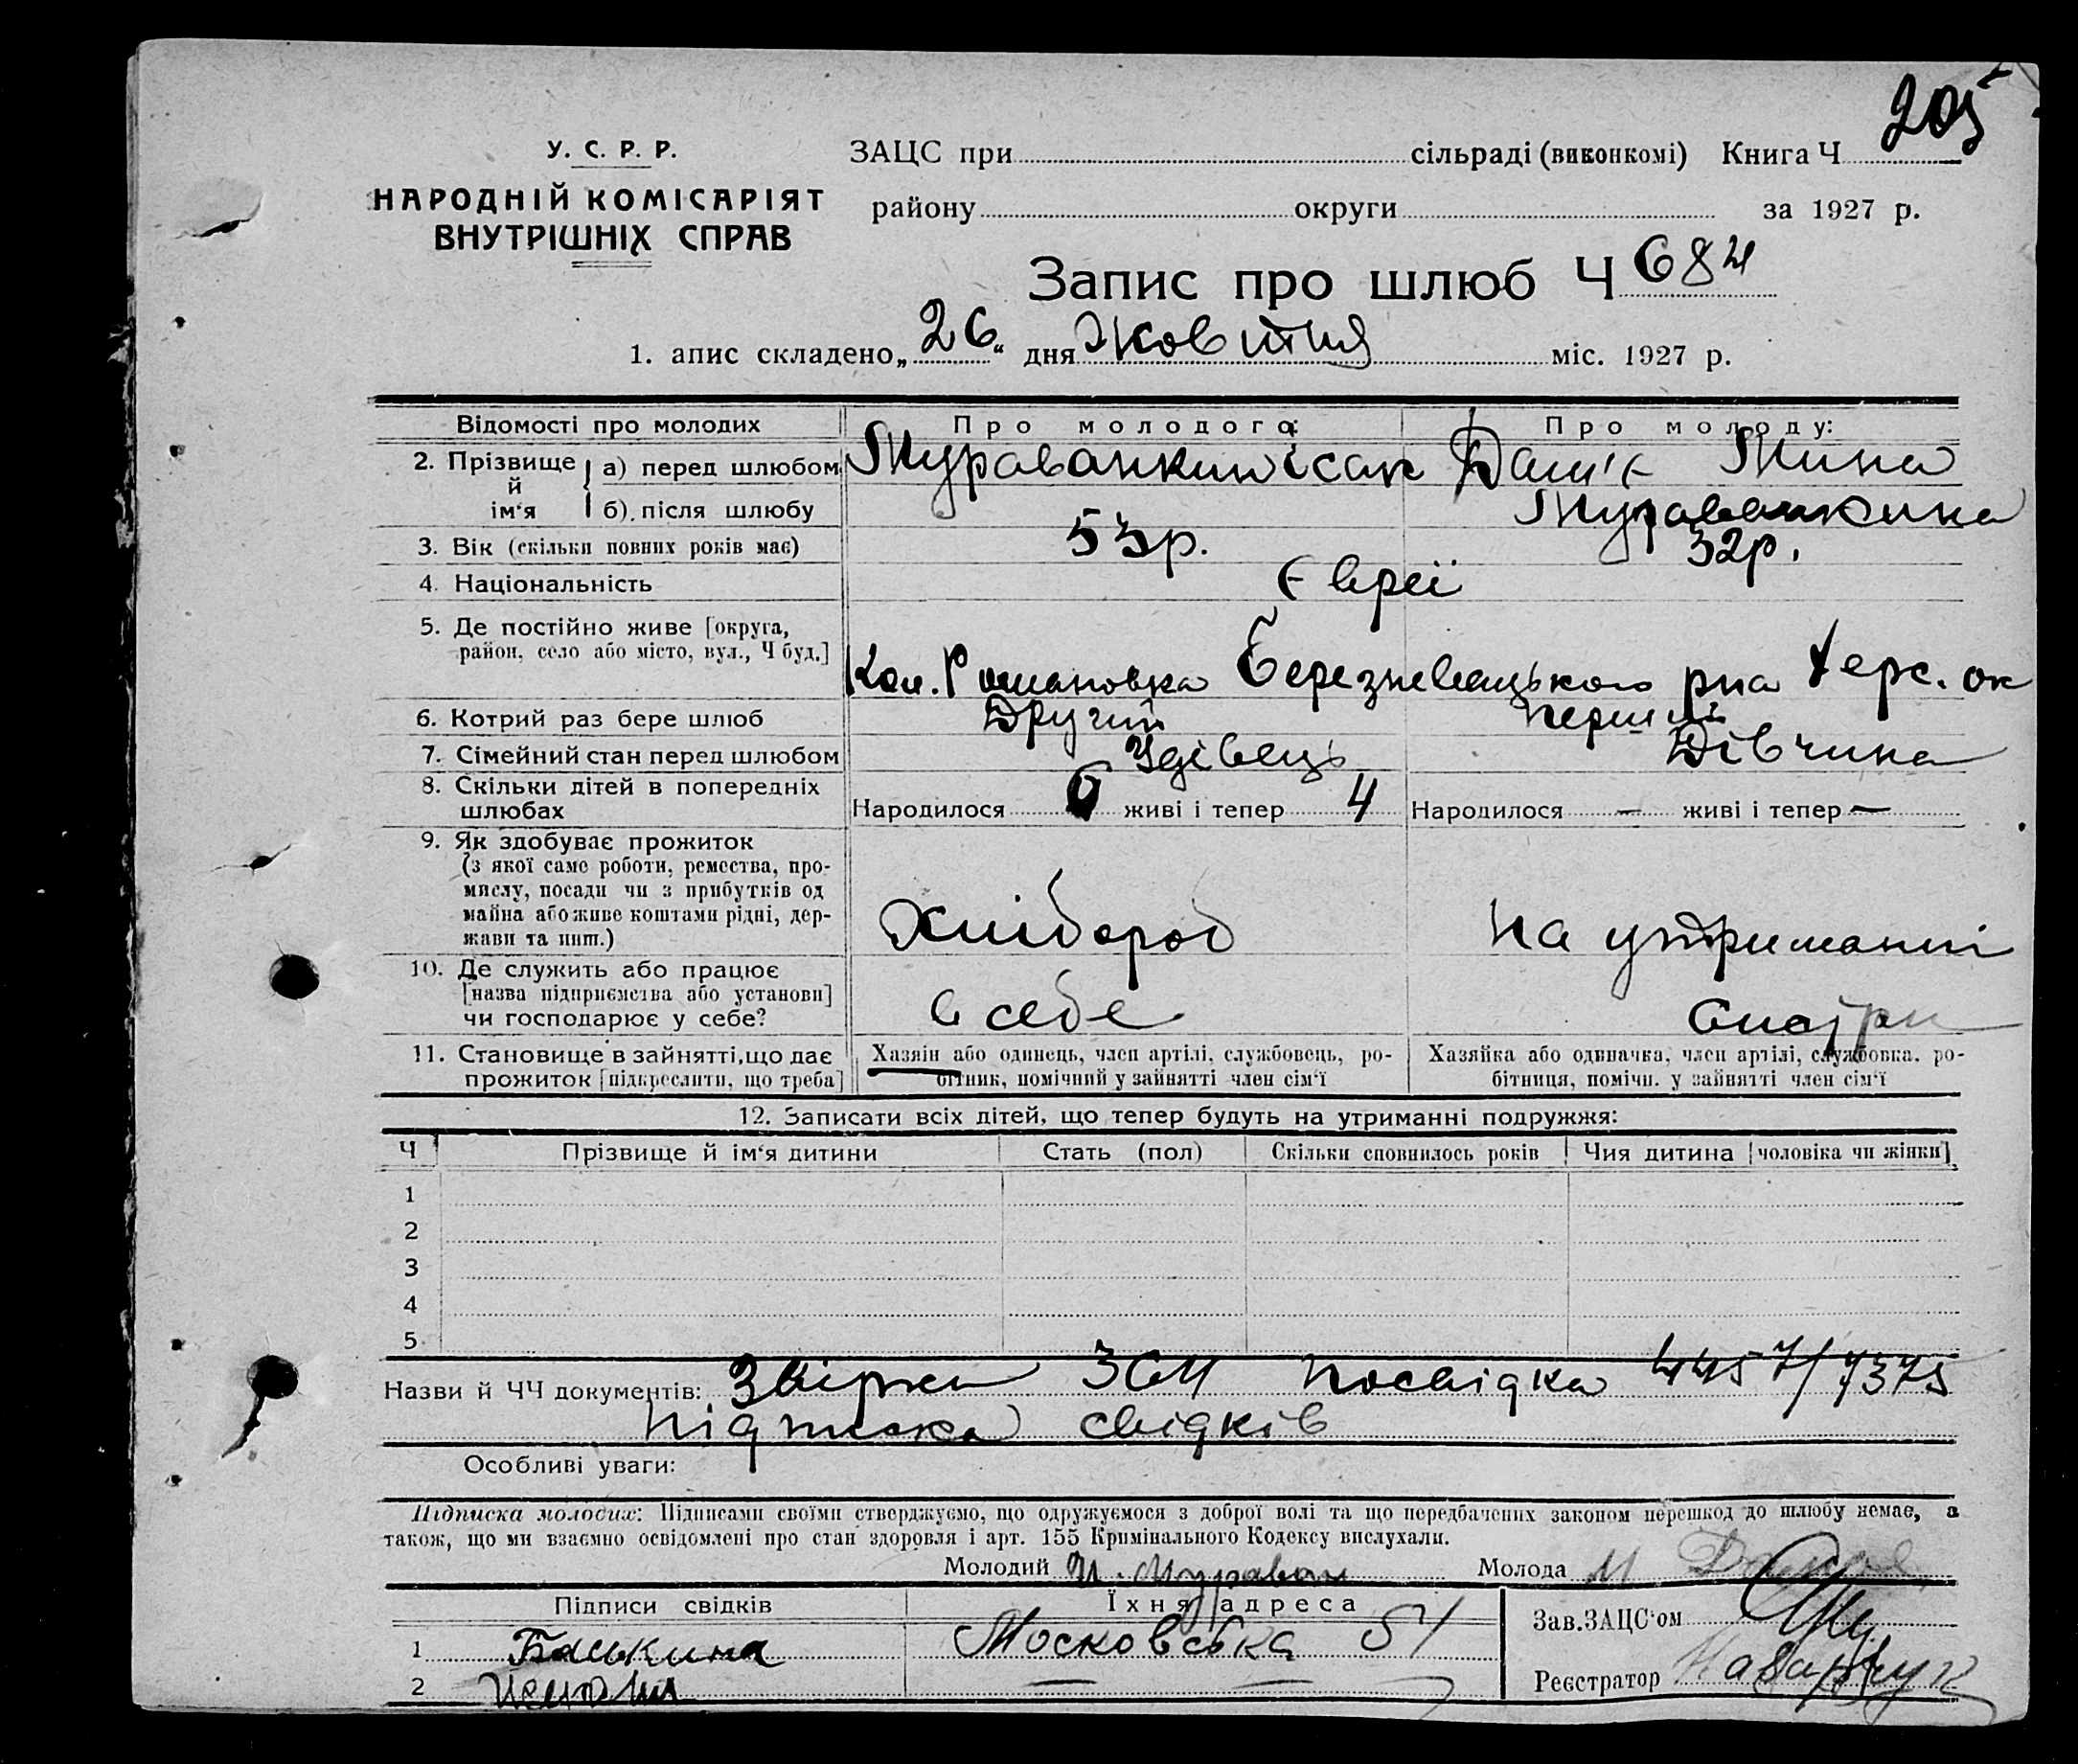 205
У. С. Р. Р.
НАРОДНІЙ КОМІСАРІЯТ
ВНУТРІШНІХ СПРАВ
ЗАЦС при сільраді (виконкомі) Книга Ч
району округи за 1927 р.
Запис про шлюб Ч 684
1. апис складено „ 26 “ дня Жовтня міс. 1927 р.
Відомості про молодих Про молодого: Про молоду:
2. Прізвище й ім'я а) перед шлюбом Мураванкин Ісак Мина
б) після шлюбу Мураванкина
3. Вік (скільки повних років має) 53р. 32р.
4. Національність Євреї
5. Де постійно живе [округа,
район, село або місто, вул., Ч буд.]
Кол. Романовка Березневацького рна Херс. ок
6. Котрий раз бере шлюб Другий перший
7. Сімейний стан перед шлюбом Удівець Дівчина
8. Скільки дітей в попередніх
шлюбах Народилося живі і тепер 4 Народилося — живі і тепер —
9. Як здобуває прожиток
(з якої саме роботи, ремества, про-
мислу, посади чи з прибутків од
майна або живе коштами рідні, дер-
жави та инш.) Хлібороб на утриманні
10. Де служить або працює
[назва підприємства або установи]
чи господарює у себе? в себе сестри
11. Становище в зайнятті, що дає Хазяїн або одинець, член артілі, службовець, ро- Хазяйка або одиначка, член артілі, службовка, ро-
прожиток [підкреслити, що треба] бітник, помічний у зайнятті член сім'ї бітниця, помічн. у зайнятті член сім'ї
12. Записати всіх дітей, що тепер будуть на утриманні подружжя:
Ч Прізвище й ім'я дитини Стать (пол) Скільки сповнилось років Чия дитина [чоловіка чи жінки]
1
2
3
4
5
Назви й ЧЧ документів: Звірки посвідка 4457/7375
підписка свідків
Особливі уваги:
Підписка молодих: Підписами своїми стверджуємо, що одружуємося з доброї волі та що передбачених законом перешкод до шлюбу немає, а
також, що ми взаємно освідомлені про стан здоровля і арт. 155 Кримінального Кодексу вислухали.
Молодий И. Мураван Молода М
Підписи свідків Їхня адреса Зав. ЗАЦС'ом
1 Баськина Московська 51
2 — — Реєстратор